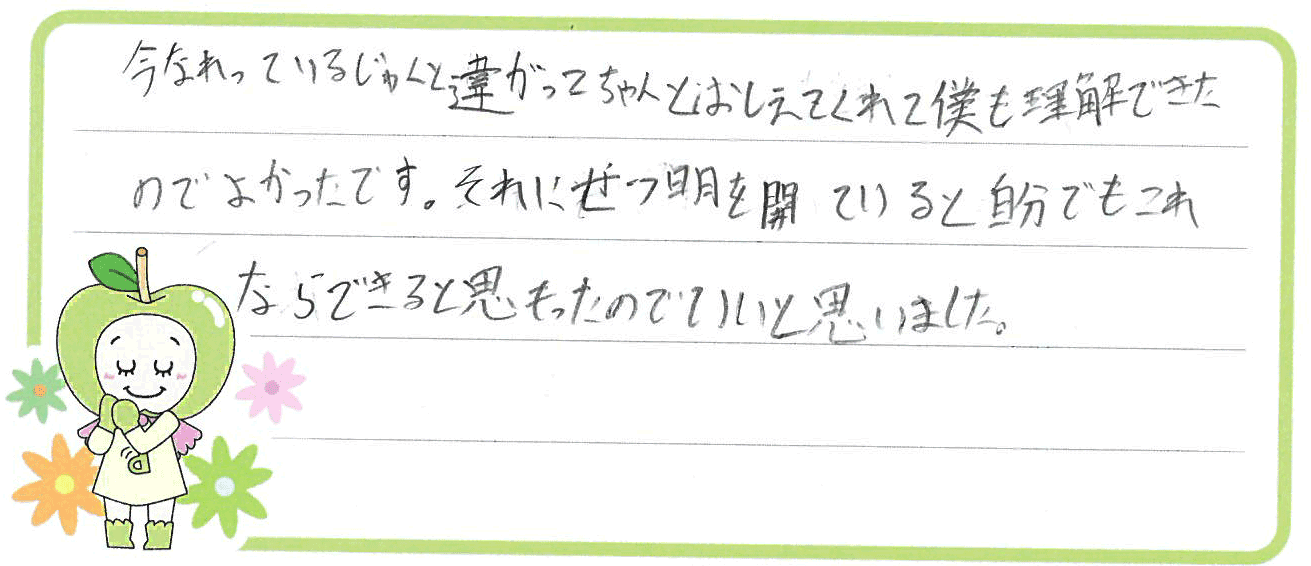 今なれっているじゅくと違がってちゃんとおしえてくれて僕も理解できた
のでよかったです。それにせつ明を開ていると自分でもこれ
ならできると思もったのでいいと思いました。